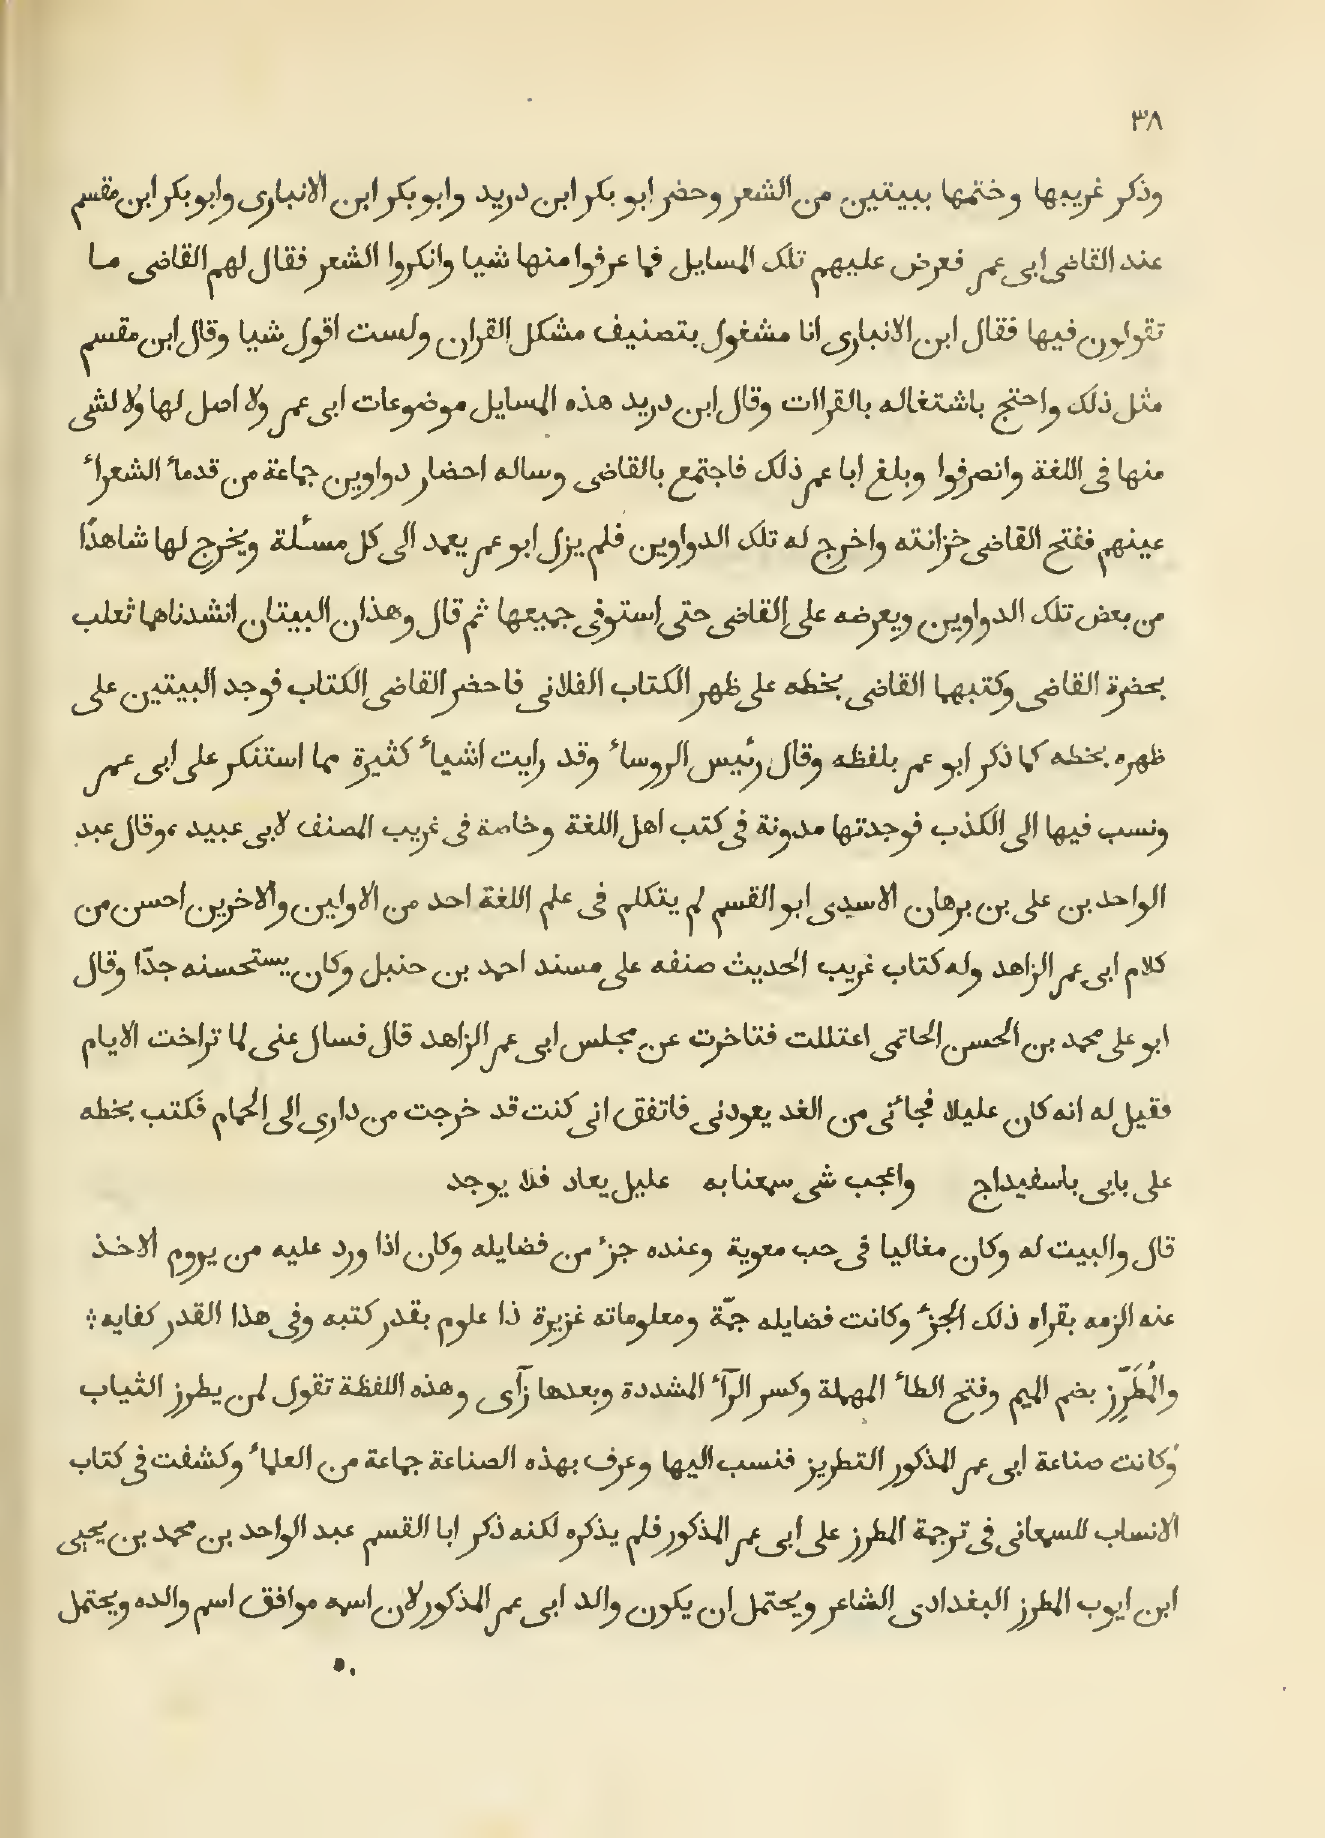 ٣٨
وذكر غريبها وختمها ببيتين من الشعر وحضر ابو بكر ابن دريد وابو بكر ابن الانبارى وابو بكر ابن مقسم
عند القاضى ابى عمر فعرض عليهم تلك المسايل فما عرفوا منها شيا وانكروا الشعر فقال لهم القاضى ما
تقولون فيها فقال ابن الانبارى انا مشغول بتصنيف مشكل القران ولست اقول شيا وقال ابن مقسم
مثل ذلك واحتج باشتغاله بالقراات وقال ابن دريد هذه المسايل موضوعات ابى عمر ولا اصل لها ولا لشى
منها فى اللغة وانصرفوا وبلغ ابا عمر ذلك فاجتمع بالقاضى وساله احضار دواوين جماعة من قدمأ الشعرأ
عينهم ففتح القاضى خزانته واخرج له تلك الدواوين فلم يزل ابو عمر يعمد الى كل مسـٔلة ويخرج لها شاهدًا
من بعض تلك الدواوين ويعرضه على القاضى حتى استوفى جميعها ثم قال وهذان البيتان انشدناهما ثعلب
بحضرة القاضى وكتبهما القاضى بخطه على ظهر الكتاب الفلانى فاحضر القاضى الكتاب فوجد البيتين على
ظهره بخطه كما ذكر ابو عمر بلفظه وقال رئيس الروسأ وقد رايت اشيأ كثيرة مما استنكر على ابى عمر
ونسب فيها الى الكذب فوجدتها مدونة فى كتب اهل اللغة وخاصة فى غريب المصنف لابى عبيد ، وقال عبد
الواحد بن على بن برهان الاسدى ابو القسم لم يتكلم فى علم اللغة احد من الاولين والاخرين احسن من
كلام ابى عمر الزاهد وله كتاب غريب الحديث صنفه على مسند احمد بن حنبل وكان يستحسنه جدّا وقال
ابو على محمد بن الحسن الحاتمى اعتللت فتاخرت عن مجلس ابى عمر الزاهد قال فسال عنى لما تراخت الايام
فقيل له انه كان عليلا فجائنى من الغد يعودنى فاتفق انى كنت قد خرجت من دارى الى الحمام فكتب بخطه
على بابى باسفيداج واعجب شى سمعنا به عليل يعاد فلا يوجد
قال والبيت له وكان مغاليا فى حب معوية وعنده جزٔ من فضايله وكان اذا ورد عليه من يروم الاخذ
عنه الزمه بقراه ذلك الجزٔ وكانت فضايله جمّة ومعلوماته غزيرة ذا علوم بقدر كتبه وفى هذا القدر كفايه ؞
والمُطَرِّز بضم الميم وفتح الطأ المهملة وكسر الرآٔ المشددة وبعدها زآى وهذه اللفظة تقول لمن يطرز الثياب
وكانت صناعة ابى عمر المذكور التطريز فنسب اليها وعرف بهذه الصناعة جماعة من العلمأ وكشفت فى كتاب
الانساب للسمعانى فى ترجمة المطرز على ابى عمر المذكور فلم يذكره لكنه ذكر ابا القسم عبد الواحد بن محمد بن يحيى
ابن ايوب المطرز البغدادى الشاعر ويحتمل ان يكون والد ابى عمر المذكور لان اسمه موافق اسم والده ويحتمل